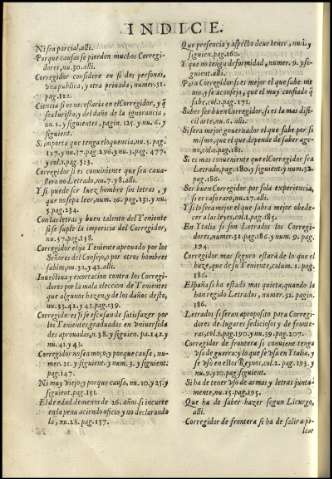 INDICE.
Ni sea parcial, alli.
Porque causas se pierden muchos Corregi-
dores, nu. 50. alli.
Corregidor considere en si dos personas,
una publica, y otra privada, numer. 51.
pag. 122.
Ciencia si es necessaria en el Corregidor, y
fea turisto, y del daño de la ignorancia,
nu. 1. y siguientes, pagin. 125. y nu. 6. y
siguient.
Si importa que tenga eloquencia, nu. 3. pag.
127. y nu. 17. pag. 136. y nu. 3. pag. 477.
y cod. pag. 513.
Corregidor si es conviniente que sea caua-
llero no Letrado, nu. 7. 98. alli.
Y si puede ser luez hombre sin letras, y
que no sepa leer, num. 16. pag. 135. y nu.
5. pag. 234.
Con las letras y buen talento del Teniente
si se suple la impericia del Corregidor,
nu. 47. pag. 238.
Corregidor elija Teniente aprovado por los
Señores del Consejo, o por otros hombres
sabios, nu. 31. y 42. alli.
Inuectiua y encaracion contra los Corregi-
dores por la mala eleccion de Tenientes
que algunos hazen, y de los daños desto,
nu. 23. 42. y 42. pag. 139.
Corregidores si se escusan de satisfazer por
los Tenientes graduados en vniuersida
des aprouadas, n. 38. y siguien. pa. 142. y
nu. 41. y 43.
Corregidor no sea moço, y porque causa, nu-
mer. 21. y siguient. y num. 3. y siguient.
pag. 147.
Ni muy viejo, y porque causa, nu. 10. y 25. y
siguient. pag. 151.
El de edad de menor de 26. años, si incurre
en la pena aceniendo oficio, y no declarando
la, nu. 28. pag. 157.
Que presencia y aspecto deue tener, nu. 1. y
siguien. pag. 160.
Y que no tenga deformidad, numer. 9. y si-
guient. alli.
Para Corregidor si es mejor el que sabe mu
cho, y se aconseja, que el muy confiado que
sabe, cod. 2. pag. 171.
Saber ser buen Corregidor, si es la mas difi-
cil arte, n. 6. alli.
Si sera mejor gouernador el que sabe por si
mismo, que el que depende de saber age-
no, cod. 2. pag. 181.
Si es mas conueniente que el Corregidor sea
Letrado, pag. 180. y siguient. y num. 32.
pag. 186.
Ser buen Corregidor por sola experiencia,
si es raro error, nu. 27. alli.
Y si lo sera mejor el que sabra mejor obede-
cer a las leyes, cod. 1. pag. 183.
En Italia se firma Letrados los Corregi-
dores, numer. 32. pag. 186. y num. 9. pag.
194.
Corregidor mas seguro estarà de lo que el
haze, que de su Teniente, colum. 2. pag.
186.
España si ha estado mas quieta, quando la
han regido Letrados, numer. 32. pagin.
186.
Letrados si seran apropositos para Corregi-
dores de lugares sediciosos y de fronte-
ras, cod. pag. 190. y nu. 59. pag. 207.
Corregidor de frontera si conuiene tenga
vso de guerra, y lo que se vsa en Italia, y
se vso en estos Reynos, col. 2. pag. 193. y
nu. 9. y 10. pag. siguient.
Si ha de tener vso de armas y letras junta-
mente, nu. 15. pag. 195.
Que ha de saber hazer segun Licurgo,
alli.
Corregidor de frontera si ha de salir a pe-
lear